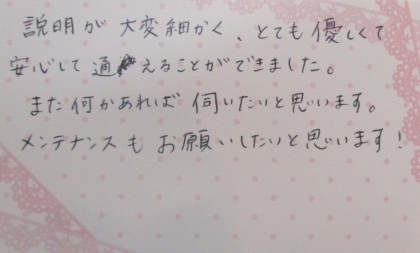 説明が大変細かく、とても優しくて
安心して通えることができました。
また何かあれば伺いたいと思います。
メンテナンスもお願いしたいと思います!